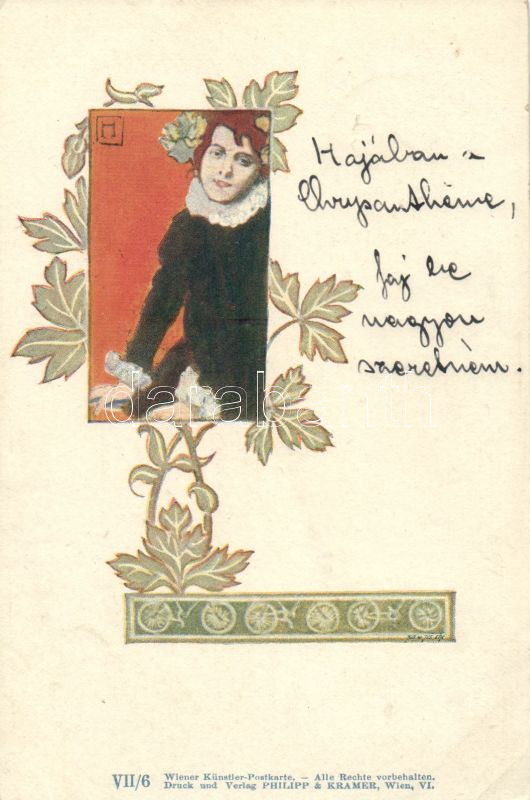 H
Hajában a
Chrysanthème,
faj de
nagyon
szeretném.
darabanth
VII/6 Wiener Künstler-Postkarte. — Alle Rechte vorbehalten.
Druck und Verlag PHILIPP & KRAMER, Wien, VI.